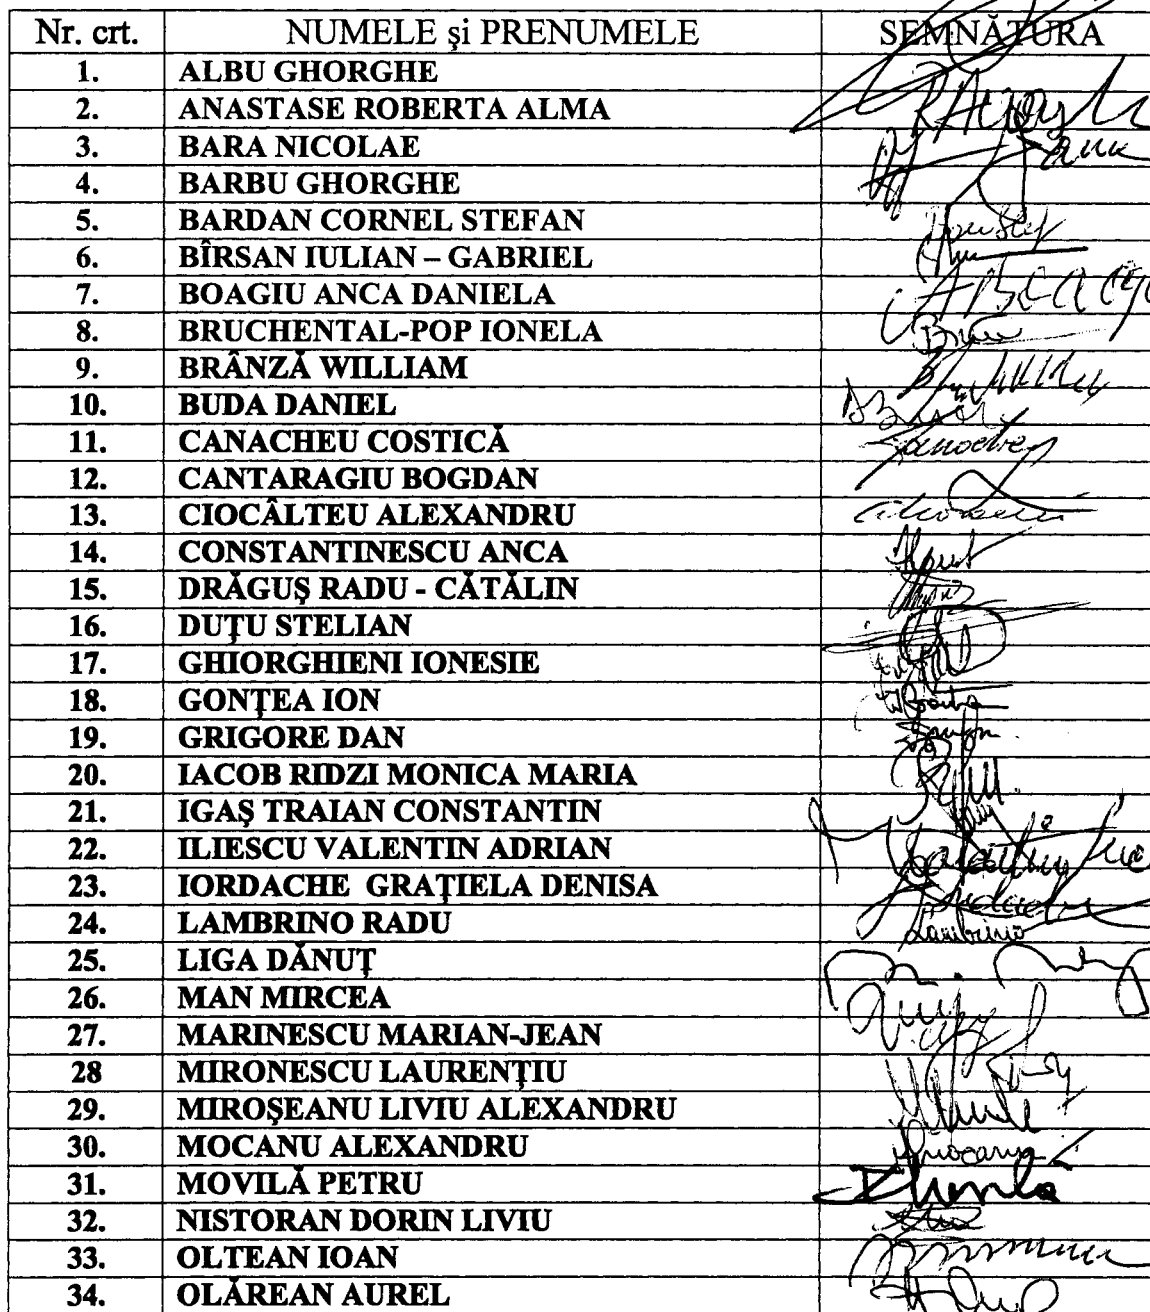 Nr. crt. NUMELE şi PRENUMELE SEMNĂTURA
1. ALBU GHORGHE
2. ANASTASE ROBERTA ALMA
3. BARA NICOLAE
4. BARBU GHORGHE
5. BARDAN CORNEL STEFAN
6. BÎRSAN IULIAN – GABRIEL
7. BOAGIU ANCA DANIELA
8. BRUCHENTAL-POP IONELA
9. BRÂNZĂ WILLIAM
10. BUDA DANIEL
11. CANACHEU COSTICĂ
12. CANTARAGIU BOGDAN
13. CIOCÂLTEU ALEXANDRU
14. CONSTANTINESCU ANCA
15. DRĂGUŞ RADU - CĂTĂLIN
16. DUŢU STELIAN
17. GHIORGHIENI IONESIE
18. GONŢEA ION
19. GRIGORE DAN
20. IACOB RIDZI MONICA MARIA
21. IGAŞ TRAIAN CONSTANTIN
22. ILIESCU VALENTIN ADRIAN
23. IORDACHE GRAŢIELA DENISA
24. LAMBRINO RADU Lambrino
25. LIGA DĂNUŢ
26. MAN MIRCEA
27. MARINESCU MARIAN-JEAN
28 MIRONESCU LAURENŢIU
29. MIROŞEANU LIVIU ALEXANDRU
30. MOCANU ALEXANDRU
31. MOVILĂ PETRU
32. NISTORAN DORIN LIVIU
33. OLTEAN IOAN
34. OLĂREAN AUREL